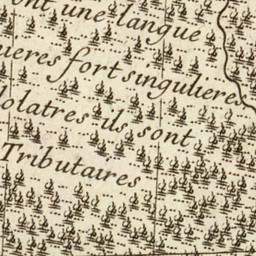 ont une langue
nieres fort singulieres
olatres ils sont
Tributaires